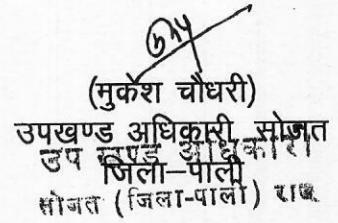 (मुकेश चौधरी)
उपखण्ड अधिकारी, सोजत
उप खण्ड अधिकारी
जिला–पाली
सोजत (जिला-पाली) राज